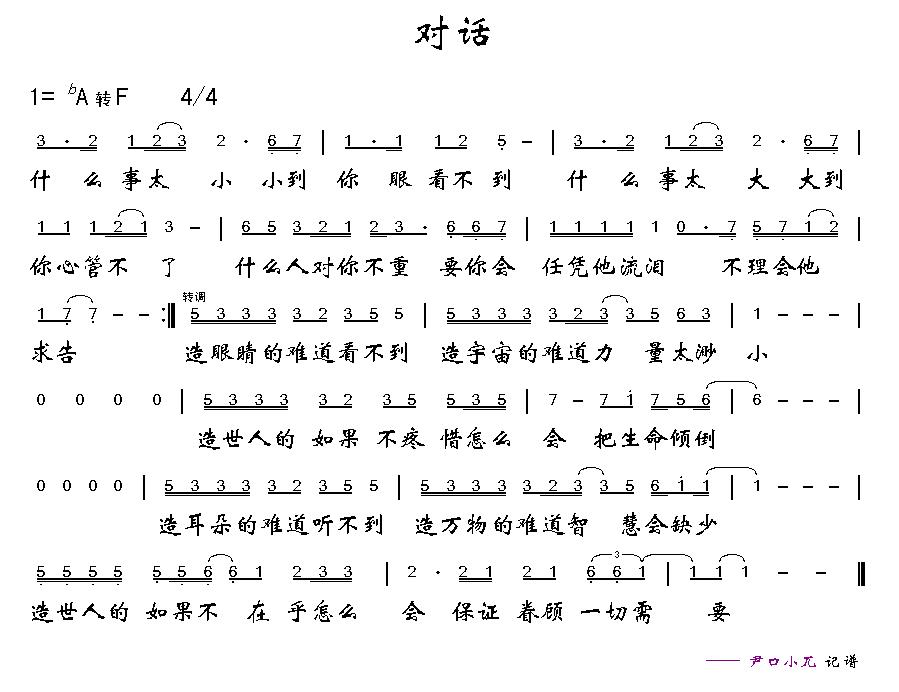 对话
1= bA 转 F 4/4
3 · 2 1 2 3 2 · 6 7 | 1 · 1 1 2 5 – | 3 · 2 1 2 3 2 · 6 7 |
什 么 事太 小 小到 你 眼 看不 到 什 么 事太 大 大到
1 1 1 2 1 3 – | 6 5 3 2 1 2 3 · 6 6 7 | 1 1 1 1 1 0 · 7 5 7 1 2 |
你心管不 了 什么人对你不重 要你会 任凭他流泪 不理会他
1 7 7 – – :‖ 转调 5 3 3 3 3 2 3 5 5 | 5 3 3 3 3 2 3 3 5 6 3 | 1 – – – |
求告 造眼睛的难道看不到 造宇宙的难道力 量太渺 小
0 0 0 0 | 5 3 3 3 3 2 3 5 5 3 5 | 7 – 7 1 7 5 6 | 6 – – – |
造世人的 如果 不疼 惜怎么 会 把生命倾倒
0 0 0 0 | 5 3 3 3 3 2 3 5 5 | 5 3 3 3 3 2 3 3 5 6 1 1 | 1 – – – |
造耳朵的难道听不到 造万物的难道智 慧会缺少
5 5 5 5 5 5 6 6 1 2 3 3 | 2 · 2 1 2 1 3 6 6 1 | 1 1 1 – – ‖
造世人的 如果不 在 乎怎么 会 保证 眷顾 一切需 要
—— 尹口小兀 记谱